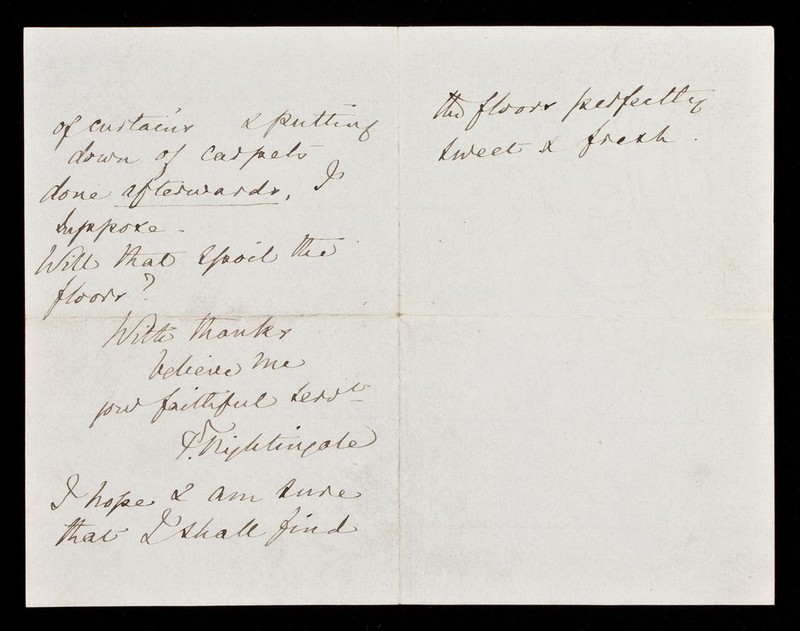 of curtains & putting
down of carpets
done afterwards, I
suppose -
Will that spoil the
floors?
With thanks
believe me
your faithful servt
F. Nightingale
I hope & am sure
that I shall find
the floors perfectly
sweet & fresh.